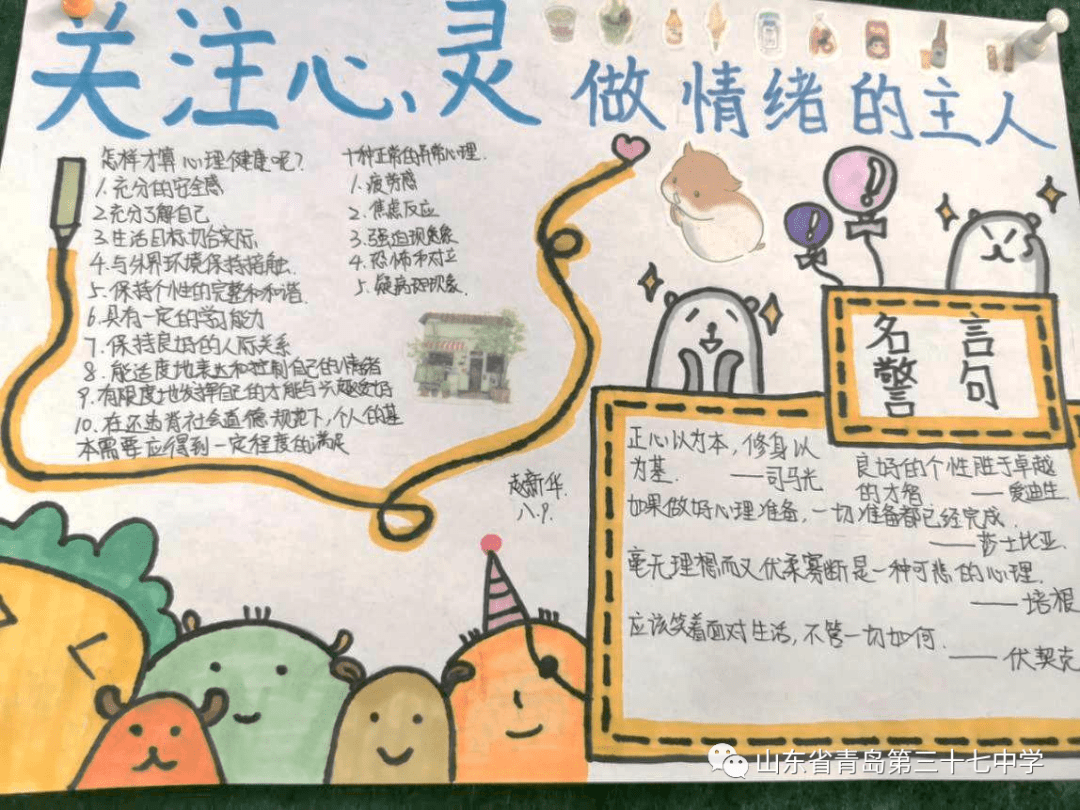 关注心灵 做情绪的主人
怎样才算心理健康呢?
1.充分的安全感
2.充分了解自己
3.生活目标切合实际
4.与外界环境保持接触.
5.保持个性的完整和和谐.
6.具有一定的学习能力
7.保持良好的人际关系
8.能适度地表达和控制自己的情绪
9.有限度地发挥自己的才能与兴趣爱好
10.在不违背社会道德规范下,个人的基
本需要应得到一定程度的满足
十种正常的异常心理.
1.疲劳感
2.焦虑反应
3.强迫现象
4.恐怖和对立
5.疑病现象.
赵新华.
八.9.
名言
警句
正心以为本,修身以
为基. ——司马光
良好的个性胜于卓越
的才智. ——爱迪生
如果做好心理准备,一切准备都已经完成.
——莎士比亚.
毫无理想而又优柔寡断是一种可悲的心理.
——培根
应该笑着面对生活,不管一切如何.
——伏契克
山东省青岛第三十七中学